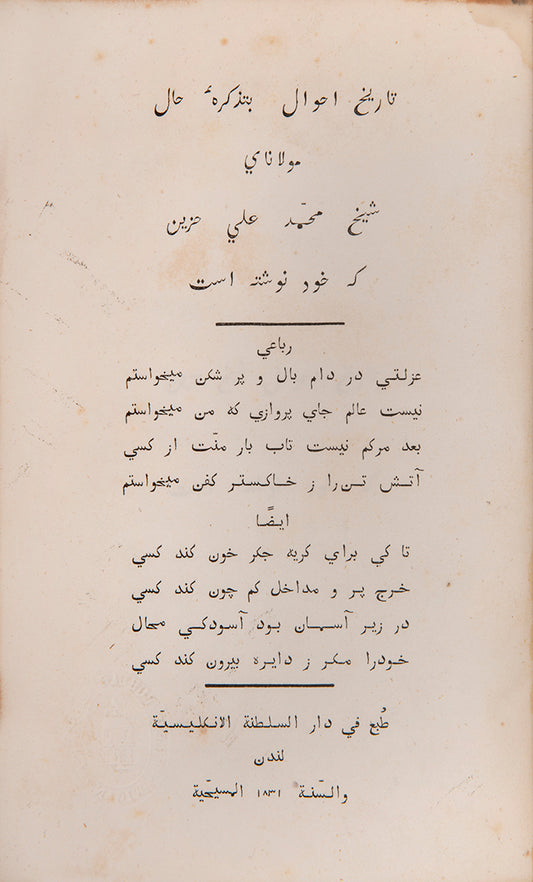 تاريخ احوال بتذكرهٴ حال
مولاناي
شيخ محمّد علي حزين
كه خود نوشته است
رباعي
عزلتي در دام بال و پر شكن ميخواستم
نيست عالم جاي پروازي كه من ميخواستم
بعد مركم نيست تاب بار منّت از كسي
آتش تن‌را ز خاكستر كفن ميخواستم
ايضًا
تا كي براي كريه جكر خون كند كسي
خرج پر و مداخل كم چون كند كسي
در زير آسمان بود آسودكي محال
خودرا مكر ز دايره بيرون كند كسي
طُبع في دار السلطنة الانكليسيّة
لندن
والسّنة ١٨٣١ المسيحّية